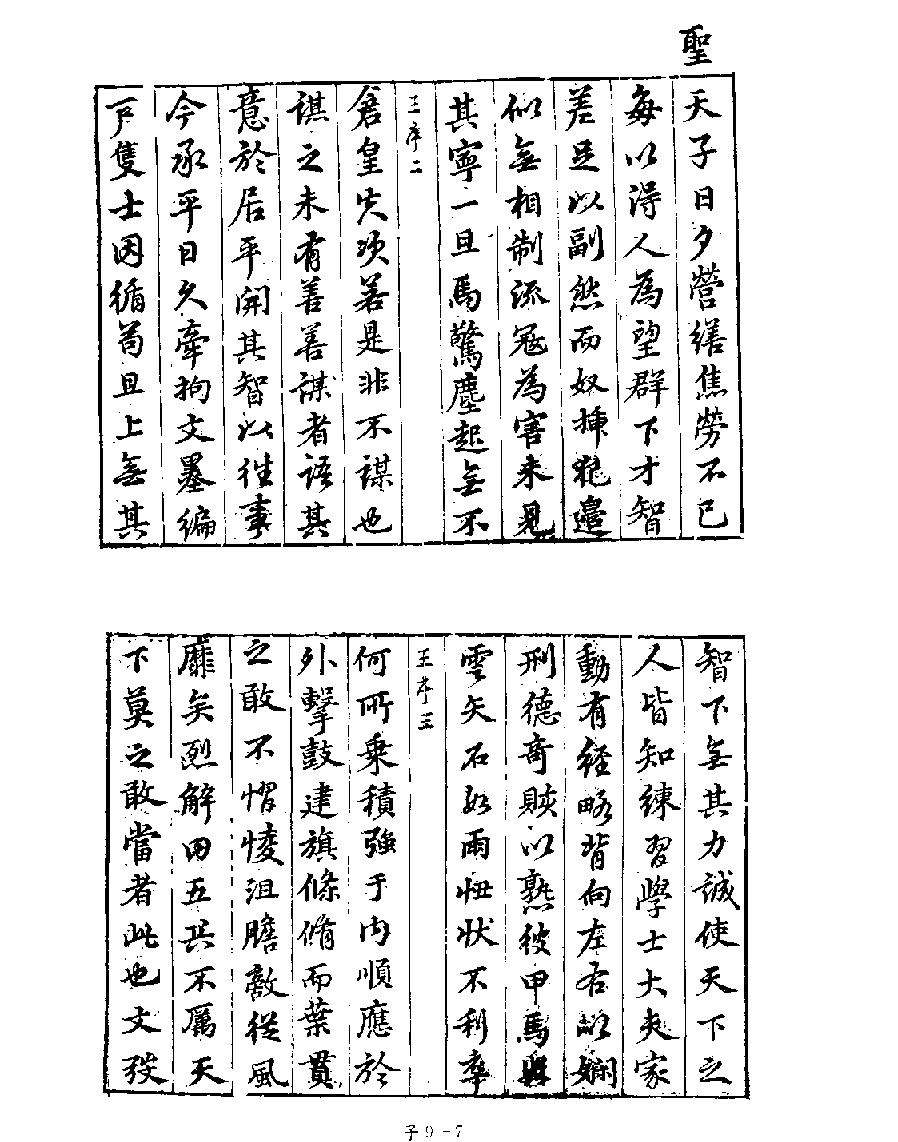 聖
天子日夕營繕焦勞不已
每以得人為望群下才智
差足以副然而奴捶邊
似無相制流寇為害未見
其寧一旦馬驚塵起無不
王序二
倉皇失次若是非不謀也
謀之未有善善謀者語其
意於居平開其智以往事
今承平日久牽拘文墨編
戶隻士因循苟且上無其
智下無其力誠使天下之
人皆知練習學士大夫家
動有經略背向左右嫻
刑德奇賅以熟彼甲馬
雲矢石如雨忸狀不利率
王序三
何所乘積強于內順應於
外擊鼓建旗條脩而葉貫
之敢不慴悛沮膽敵從風
靡矣烈解田五兵不厲天
下莫之敢當者此也文
子9-7